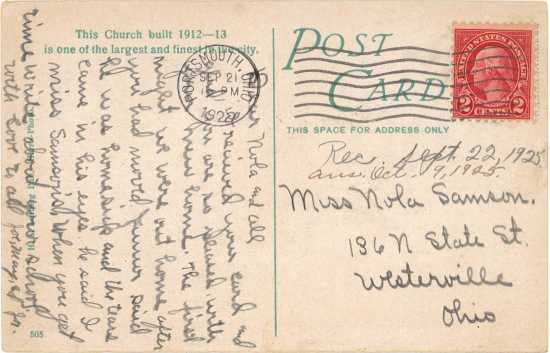 This Church built 1912—13
is one of the largest and finest in the city.
POST
CARD
THIS SPACE FOR ADDRESS ONLY
PORTSMOUTH, OHIO
SEP 21
PM
UNITED STATES POSTAGE
2 CENTS 2
Rec. Sept. 22, 1925
ans. Oct. 9, 1925.
Miss Nola Samson.
136 N State St.
Westerville
Ohio
Dear Nola and all
received your card and
we are so pleased with
new home. The first
night we were out home after
you had moved Junior said
he was homesick and the tears
came in his eyes he said I
miss Samsons when you get
time write about your school
with love to all
505